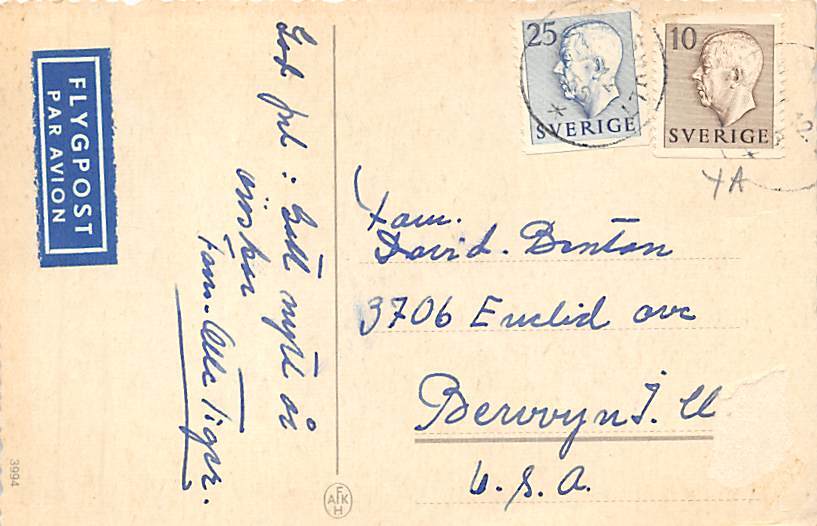 FLYGPOST
PAR AVION
God Jul: Gott nytt år
önskar
fam. Olle Tiger.
25
SVERIGE
10
SVERIGE
Fam.
David. Benton
3706 Euclid ave
Berwyn I. ll
U. S. A.
3994
AFK
H